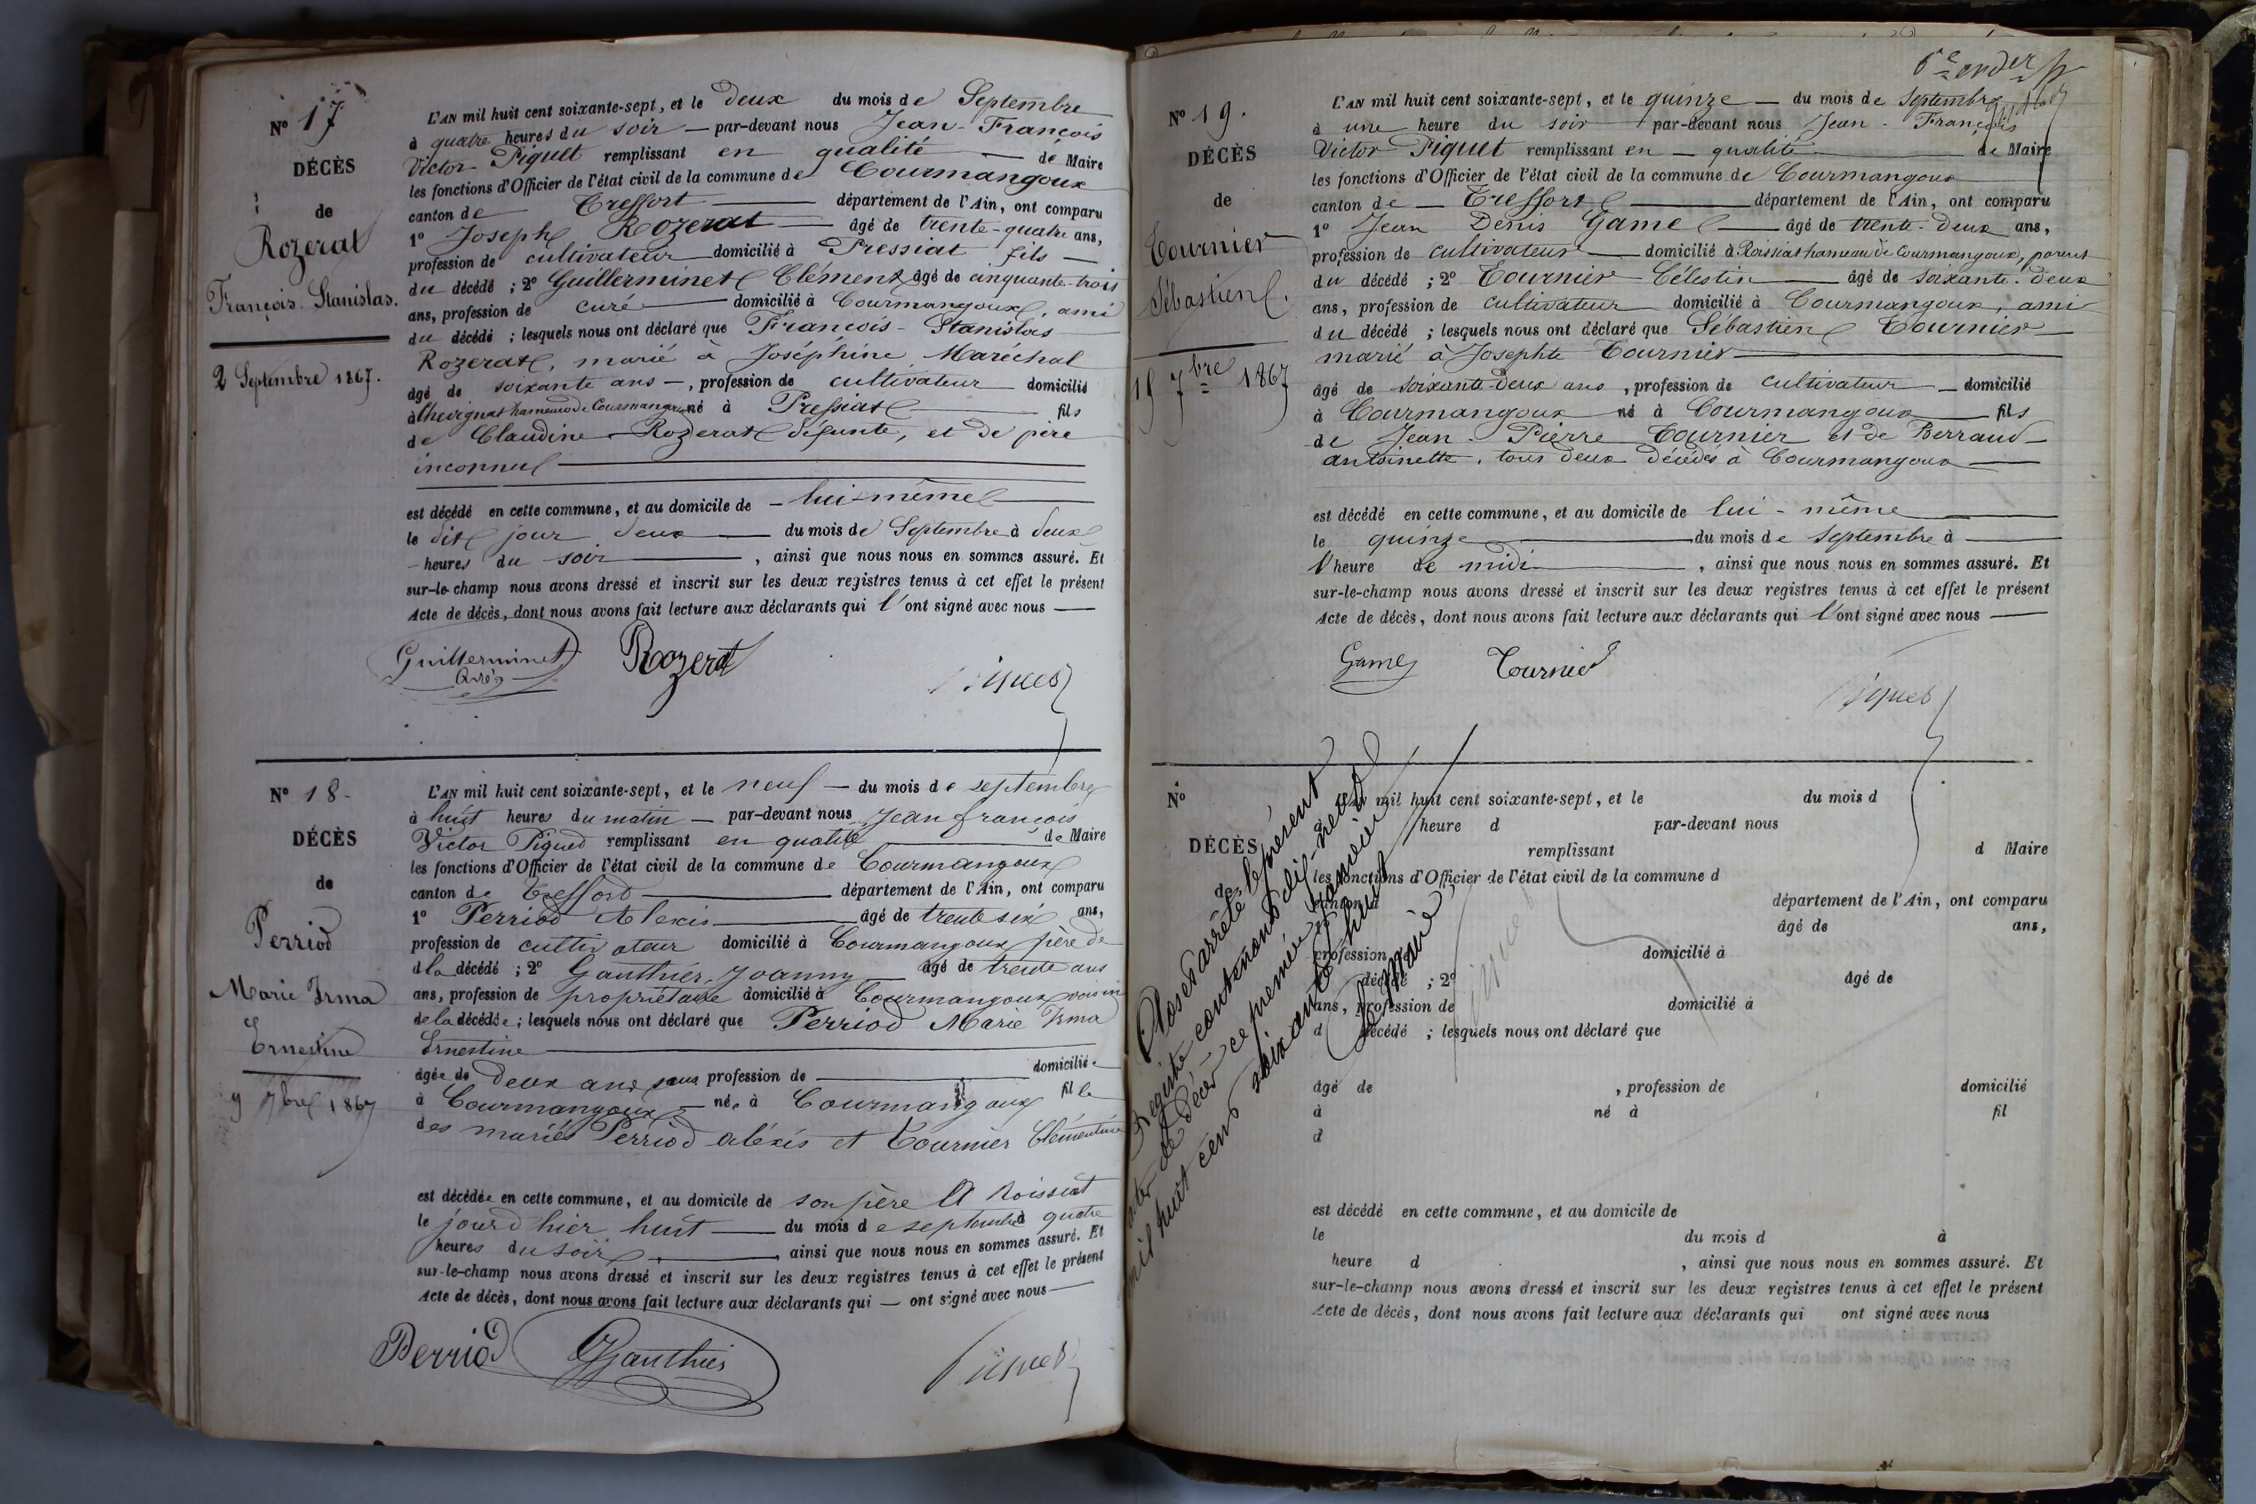 N° 17
DÉCÈS
de
Rozerat
François-Stanislas.
2 Septembre 1867.
L'AN mil huit cent soixante-sept, et le deux du mois de Septembre
à quatre heures du soir — par-devant nous Jean-François
Victor Piquet remplissant en qualité — de Maire
les fonctions d'Officier de l'état civil de la commune de Courmangoux
canton de Treffort — département de l'Ain, ont comparu
1° Joseph Rozerat — âgé de trente-quatre ans,
profession de cultivateur domicilié à Pressiat fils —
du décédé ; 2° Guillerminet Clément âgé de cinquante-trois
ans, profession de curé — domicilié à Courmangoux, ami
du décédé ; lesquels nous ont déclaré que François-Stanislas
Rozerat, marié à Joséphine Maréchal
âgé de soixante ans —, profession de cultivateur domicilié
à Chevignat hameau de Courmangoux né à Pressiat — fils
de Claudine Rozerat défunte, et de père
inconnu —
est décédé en cette commune, et au domicile de — lui-même —
le dit jour deux — du mois de Septembre à deux
— heures du soir —, ainsi que nous nous en sommes assuré. Et
sur-le-champ nous avons dressé et inscrit sur les deux registres tenus à cet effet le présent
Acte de décès, dont nous avons fait lecture aux déclarants qui l'ont signé avec nous —
Guillerminet
Curé
Rozerat
Piquet
N° 18.
DÉCÈS
de
Perriod
Marie Irma
Ernestine
9 7bre 1867
L'AN mil huit cent soixante-sept, et le neuf — du mois de septembre
à huit heures du matin — par-devant nous Jean françois
Victor Piquet remplissant en qualité — de Maire
les fonctions d'Officier de l'état civil de la commune de Courmangoux
canton de Treffort — département de l'Ain, ont comparu
1° Perriod Alexis — âgé de trente six ans,
profession de cultivateur domicilié à Courmangoux père de
d la décédé ; 2° Gauthier, Joanny — âgé de trente ans
ans, profession de propriétaire domicilié à Courmangoux voisin
de la décédée ; lesquels nous ont déclaré que Perriod Marie Irma
Ernestine —
âgée de deux ans sans profession de — domiciliée
à Courmangoux — née à Courmangoux fille
des mariés Perriod alexis et Tournier Clémentine
est décédée en cette commune, et au domicile de son père A Roissiat
le jour d'hier huit — du mois de septembre à quatre
heures du soir —, ainsi que nous nous en sommes assuré. Et
sur-le-champ nous avons dressé et inscrit sur les deux registres tenus à cet effet le présent
Acte de décès, dont nous avons fait lecture aux déclarants qui — ont signé avec nous —
Perriod
Gauthier
Piquet
6e
N° 19.
DÉCÈS
de
Tournier
Sébastien.
15 7bre 1867
L'AN mil huit cent soixante-sept, et le quinze — du mois de Septembre
à une heure du soir par-devant nous Jean-François
Victor Piquet remplissant en — qualité — de Maire
les fonctions d'Officier de l'état civil de la commune de Courmangoux
canton de — Treffort — département de l'Ain, ont comparu
1° Jean Denis Game — âgé de trente-deux ans,
profession de cultivateur — domicilié à Roissiat hameau de Courmangoux, parent
du décédé ; 2° Tournier Célestin — âgé de soixante-deux
ans, profession de cultivateur domicilié à Courmangoux, ami
du décédé ; lesquels nous ont déclaré que Sébastien Tournier
marié à Josephte Tournier —
âgé de soixante-deux ans, profession de cultivateur — domicilié
à Courmangoux né à Courmangoux — fils
de Jean-Pierre Tournier et de Berraud —
antoinette, tous deux décédés à Courmangoux —
est décédé en cette commune, et au domicile de lui-même —
le quinze — du mois de Septembre à —
l'heure de midi —, ainsi que nous nous en sommes assuré. Et
sur-le-champ nous avons dressé et inscrit sur les deux registres tenus à cet effet le présent
Acte de décès, dont nous avons fait lecture aux déclarants qui l'ont signé avec nous —
Game
Tournier
Piquet
N°
DÉCÈS
de
L'AN mil huit cent soixante-sept, et le du mois d
à heure d par-devant nous
remplissant d Maire
les fonctions d'Officier de l'état civil de la commune d
canton d département de l'Ain, ont comparu
âgé de ans,
profession domicilié à
décédé ; 2° âgé de
ans, profession de domicilié à
d décédé ; lesquels nous ont déclaré que
âgé de , profession de domicilié
à né à fil
d
est décédé en cette commune, et au domicile de
le du mois d à
heure d , ainsi que nous nous en sommes assuré. Et
sur-le-champ nous avons dressé et inscrit sur les deux registres tenus à cet effet le présent
Acte de décès, dont nous avons fait lecture aux déclarants qui ont signé avec nous
Clos et arrêté le présent
Registre contenant dix-neuf
actes de décès — ce premier janvier
mil huit cent soixante huit
Le Maire,
Piquet